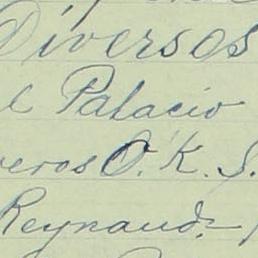 Diversos
l Palacio
veros O. K. S.
Reynaud.